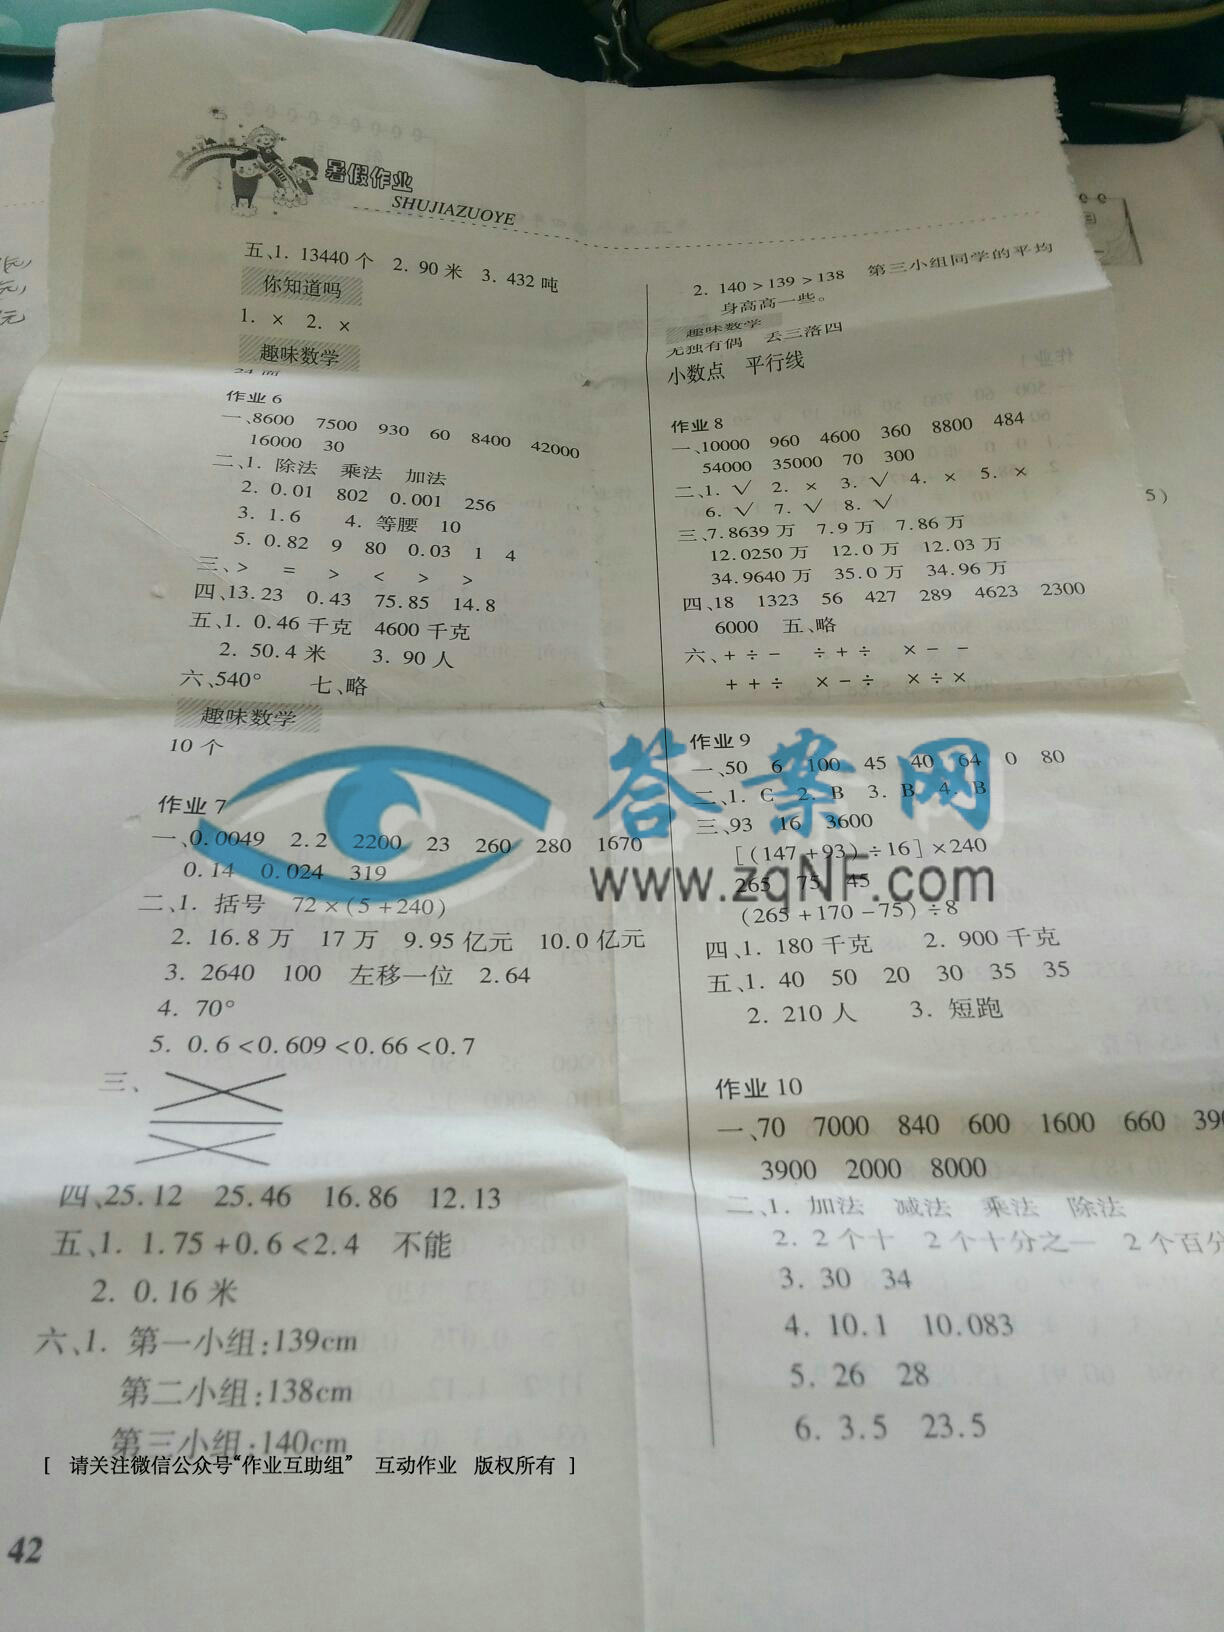 暑假作业
SHUJIAZUOYE
五、1. 13440 个 2. 90 米 3. 432 吨
你知道吗
1. × 2. ×
趣味数学
作业 6
一、8600 7500 930 60 8400 42000
16000 30
二、1. 除法 乘法 加法
2. 0.01 802 0.001 256
3. 1.6 4. 等腰 10
5. 0.82 9 80 0.03 1 4
三、> = > < > >
四、13.23 0.43 75.85 14.8
五、1. 0.46 千克 4600 千克
2. 50.4 米 3. 90 人
六、540° 七、略
趣味数学
10 个
作业 7
一、0.0049 2.2 2200 23 260 280 1670
0.14 0.024 319
二、1. 括号 72×(5+240)
2. 16.8 万 17 万 9.95 亿元 10.0 亿元
3. 2640 100 左移一位 2.64
4. 70°
5. 0.6<0.609<0.66<0.7
三、
四、25.12 25.46 16.86 12.13
五、1. 1.75+0.6<2.4 不能
2. 0.16 米
六、1. 第一小组:139cm
第二小组:138cm
第三小组:140cm
2. 140>139>138 第三小组同学的平均
身高高一些。
趣味数学
无独有偶 丢三落四
小数点 平行线
作业 8
一、10000 960 4600 360 8800 484
54000 35000 70 300
二、1. √ 2. × 3. √ 4. × 5. ×
6. √ 7. √ 8. √
三、7.8639 万 7.9 万 7.86 万
12.0250 万 12.0 万 12.03 万
34.9640 万 35.0 万 34.96 万
四、18 1323 56 427 289 4623 2300
6000 五、略
六、+ ÷ − ÷ + ÷ × − −
+ + ÷ × − ÷ × ÷ ×
作业 9
一、50 6 100 45 40 64 0 80
二、1. C 2. B 3. B 4. B
三、93 16 3600
[(147+93)÷16]×240
265 75 45
(265+170−75)÷8
四、1. 180 千克 2. 900 千克
五、1. 40 50 20 30 35 35
2. 210 人 3. 短跑
作业 10
一、70 7000 840 600 1600 660 390
3900 2000 8000
二、1. 加法 减法 乘法 除法
2. 2 个十 2 个十分之一 2 个百分
3. 30 34
4. 10.1 10.083
5. 26 28
6. 3.5 23.5
5)
答案网
www.zqNF.com
[ 请关注微信公众号“作业互助组” 互动作业 版权所有 ]
42